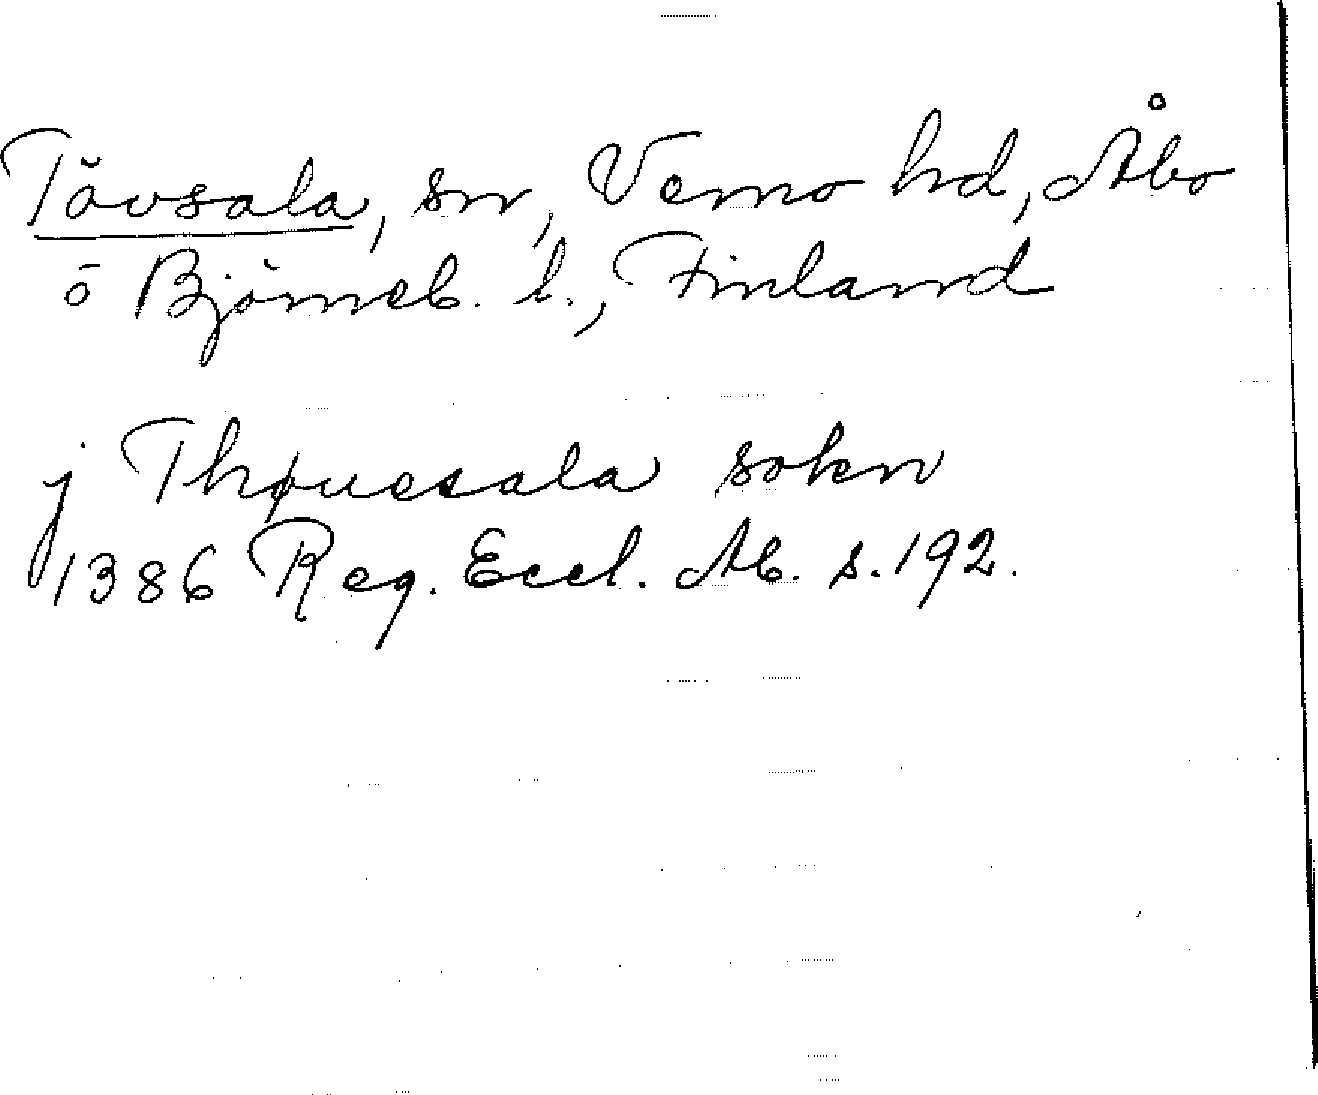 Tövsala, sn, Vemo hd, Åbo
o Björneb. l., Finland
j Thøuesala sokn
1386 Reg. Eccl. Ab. s. 192.